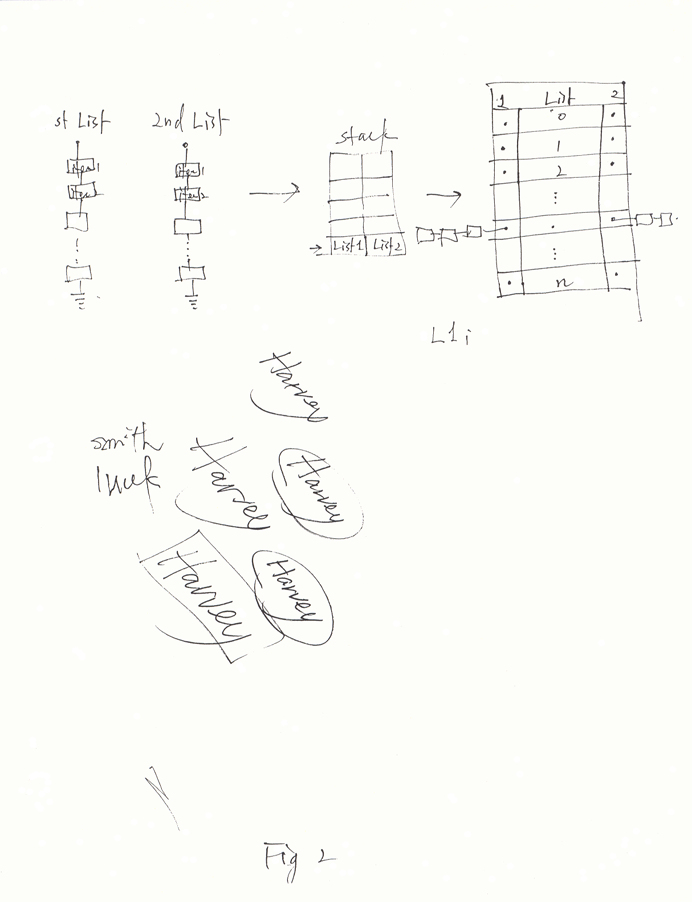 st List
2nd List
item 1
item 2
item 1
item 2
stack
List 1
List 2
1 List 2
0
1
2
n
L1i
Harvey
smith
luck
Harvey
Harvey
Harvey
Harvey
Fig 2